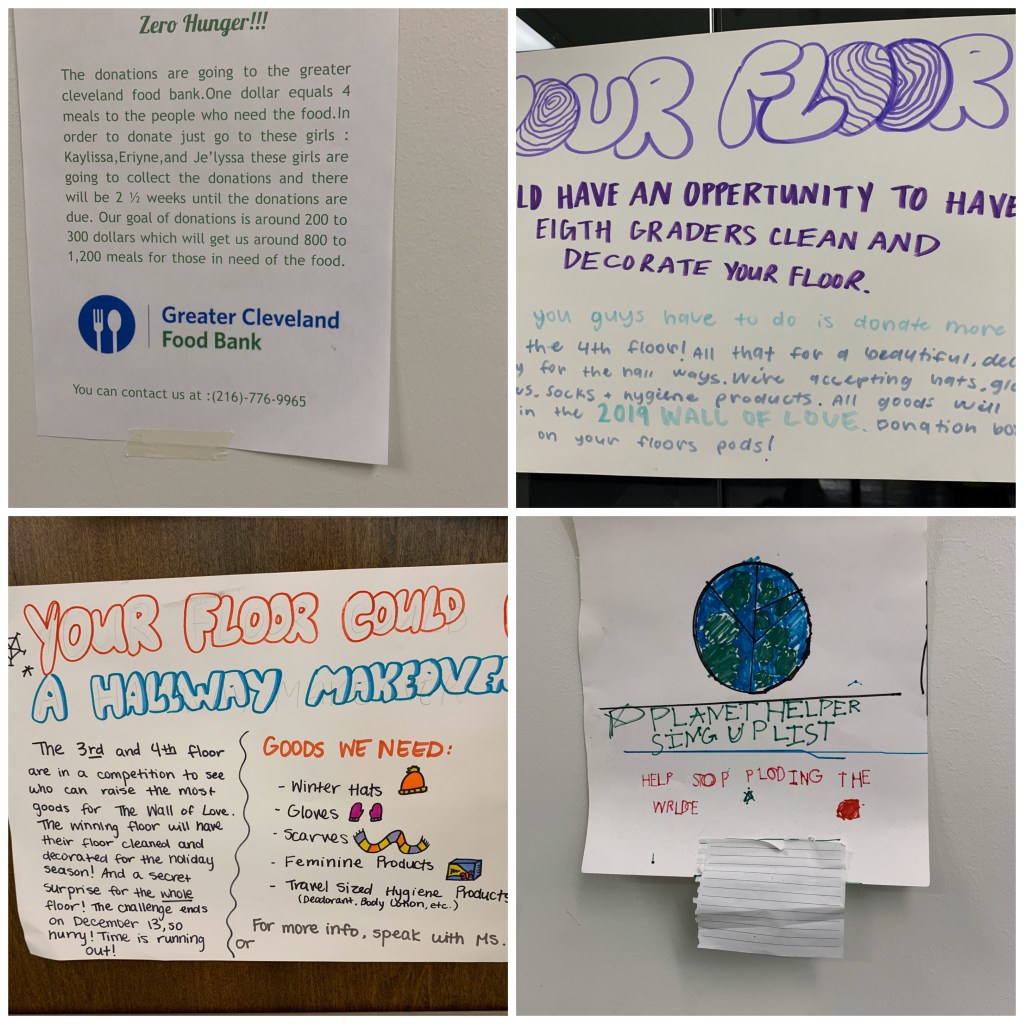 Zero Hunger!!!
The donations are going to the greater
cleveland food bank.One dollar equals 4
meals to the people who need the food.In
order to donate just go to these girls :
Kaylissa,Eriyne,and Je'lyssa these girls are
going to collect the donations and there
will be 2 ½ weeks until the donations are
due. Our goal of donations is around 200 to
300 dollars which will get us around 800 to
1,200 meals for those in need of the food.
Greater Cleveland
Food Bank
You can contact us at :(216)-776-9965
OUR FLOOR
LD HAVE AN OPPERTUNITY TO HAVE
EIGTH GRADERS CLEAN AND
DECORATE YOUR FLOOR.
you guys have to do is donate more
the 4th floor! All that for a beautiful, dec
y for the hall ways. We're accepting hats, glo
us, socks + hygiene products. All goods will
in the 2019 WALL OF LOVE. Donation bo
on your floors pods!
YOUR FLOOR COULD
A HALLWAY MAKEOVER
The 3rd and 4th floor
are in a competition to see
who can raise the most
goods for The Wall of Love.
The winning floor will have
their floor cleaned and
decorated for the holiday
season! And a secret
surprise for the whole
floor! The challenge ends
on December 13, so
hurry! Time is running
out!
GOODS WE NEED:
- Winter Hats
- Gloves
- Scarves
- Feminine Products
- Travel Sized Hygiene Products
(Deodorant, Body Lotion, etc.)
For more info, speak with Ms.
or
PLANET HELPER
SING UP LIST
HELP STOP PLODING THE
WRLDE